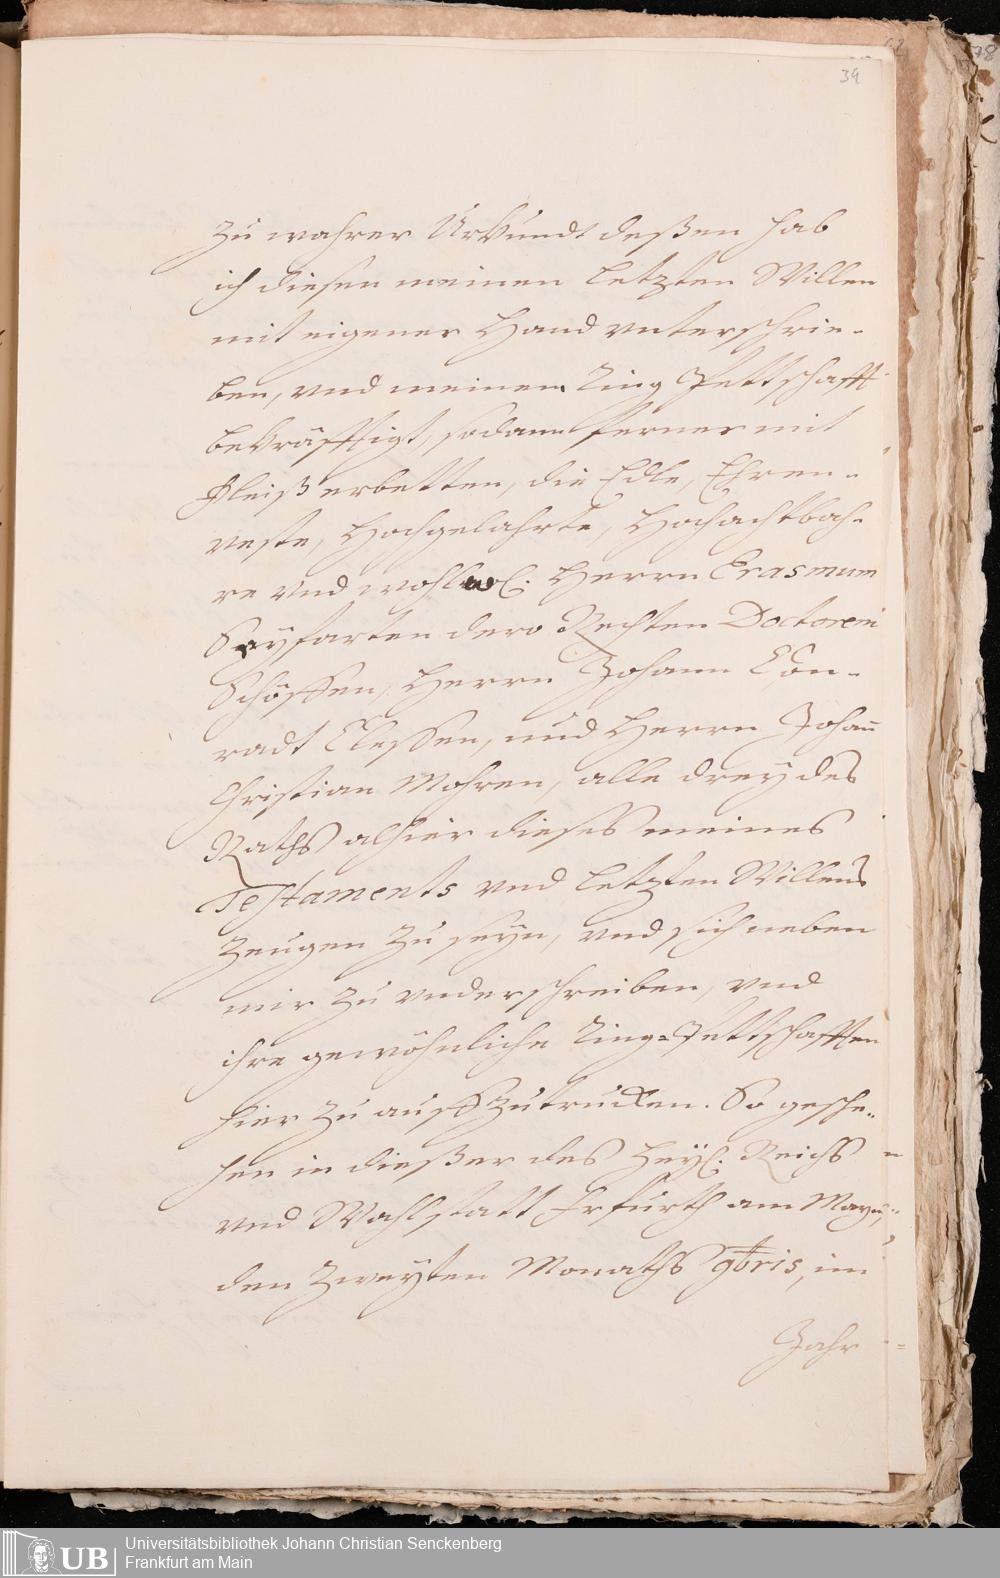 39
Zu wahrer Urkundt deßen hab
ich diesen meinen letzten Willen
mit eigener Hand vnterschrie-
ben, vnd meinem Ring Pettschafft
bekräfftigt, sodann ferner mit
Fleiß erbetten, die Edle, Ehren-
veste, Hochgelahrte, Hochachtbah-
re vnd wohl Herrn Erasmum
Seyfarten dero Rechten Doctorem
Schöffen, Herrn Johann Con-
radt Clessen, und Herrn Johan̄
Christian Mohren, alle drey des
Raths alhier dieses meines
Testaments vnd letzten Willens
Zeugen zu seyn, vnd sich neben
mir zu vnderschreiben, vnd
ihre gewöhnliche Ring-Pettschafften
hier zu auff zutrucken. So gesche-
hen in dießer des Heyl. Reichs
vnd Wahlstatt Frfurth am Mayn,
den Zweyten Monaths 9bris, im
Jahr
UB
Universitätsbibliothek Johann Christian Senckenberg
Frankfurt am Main